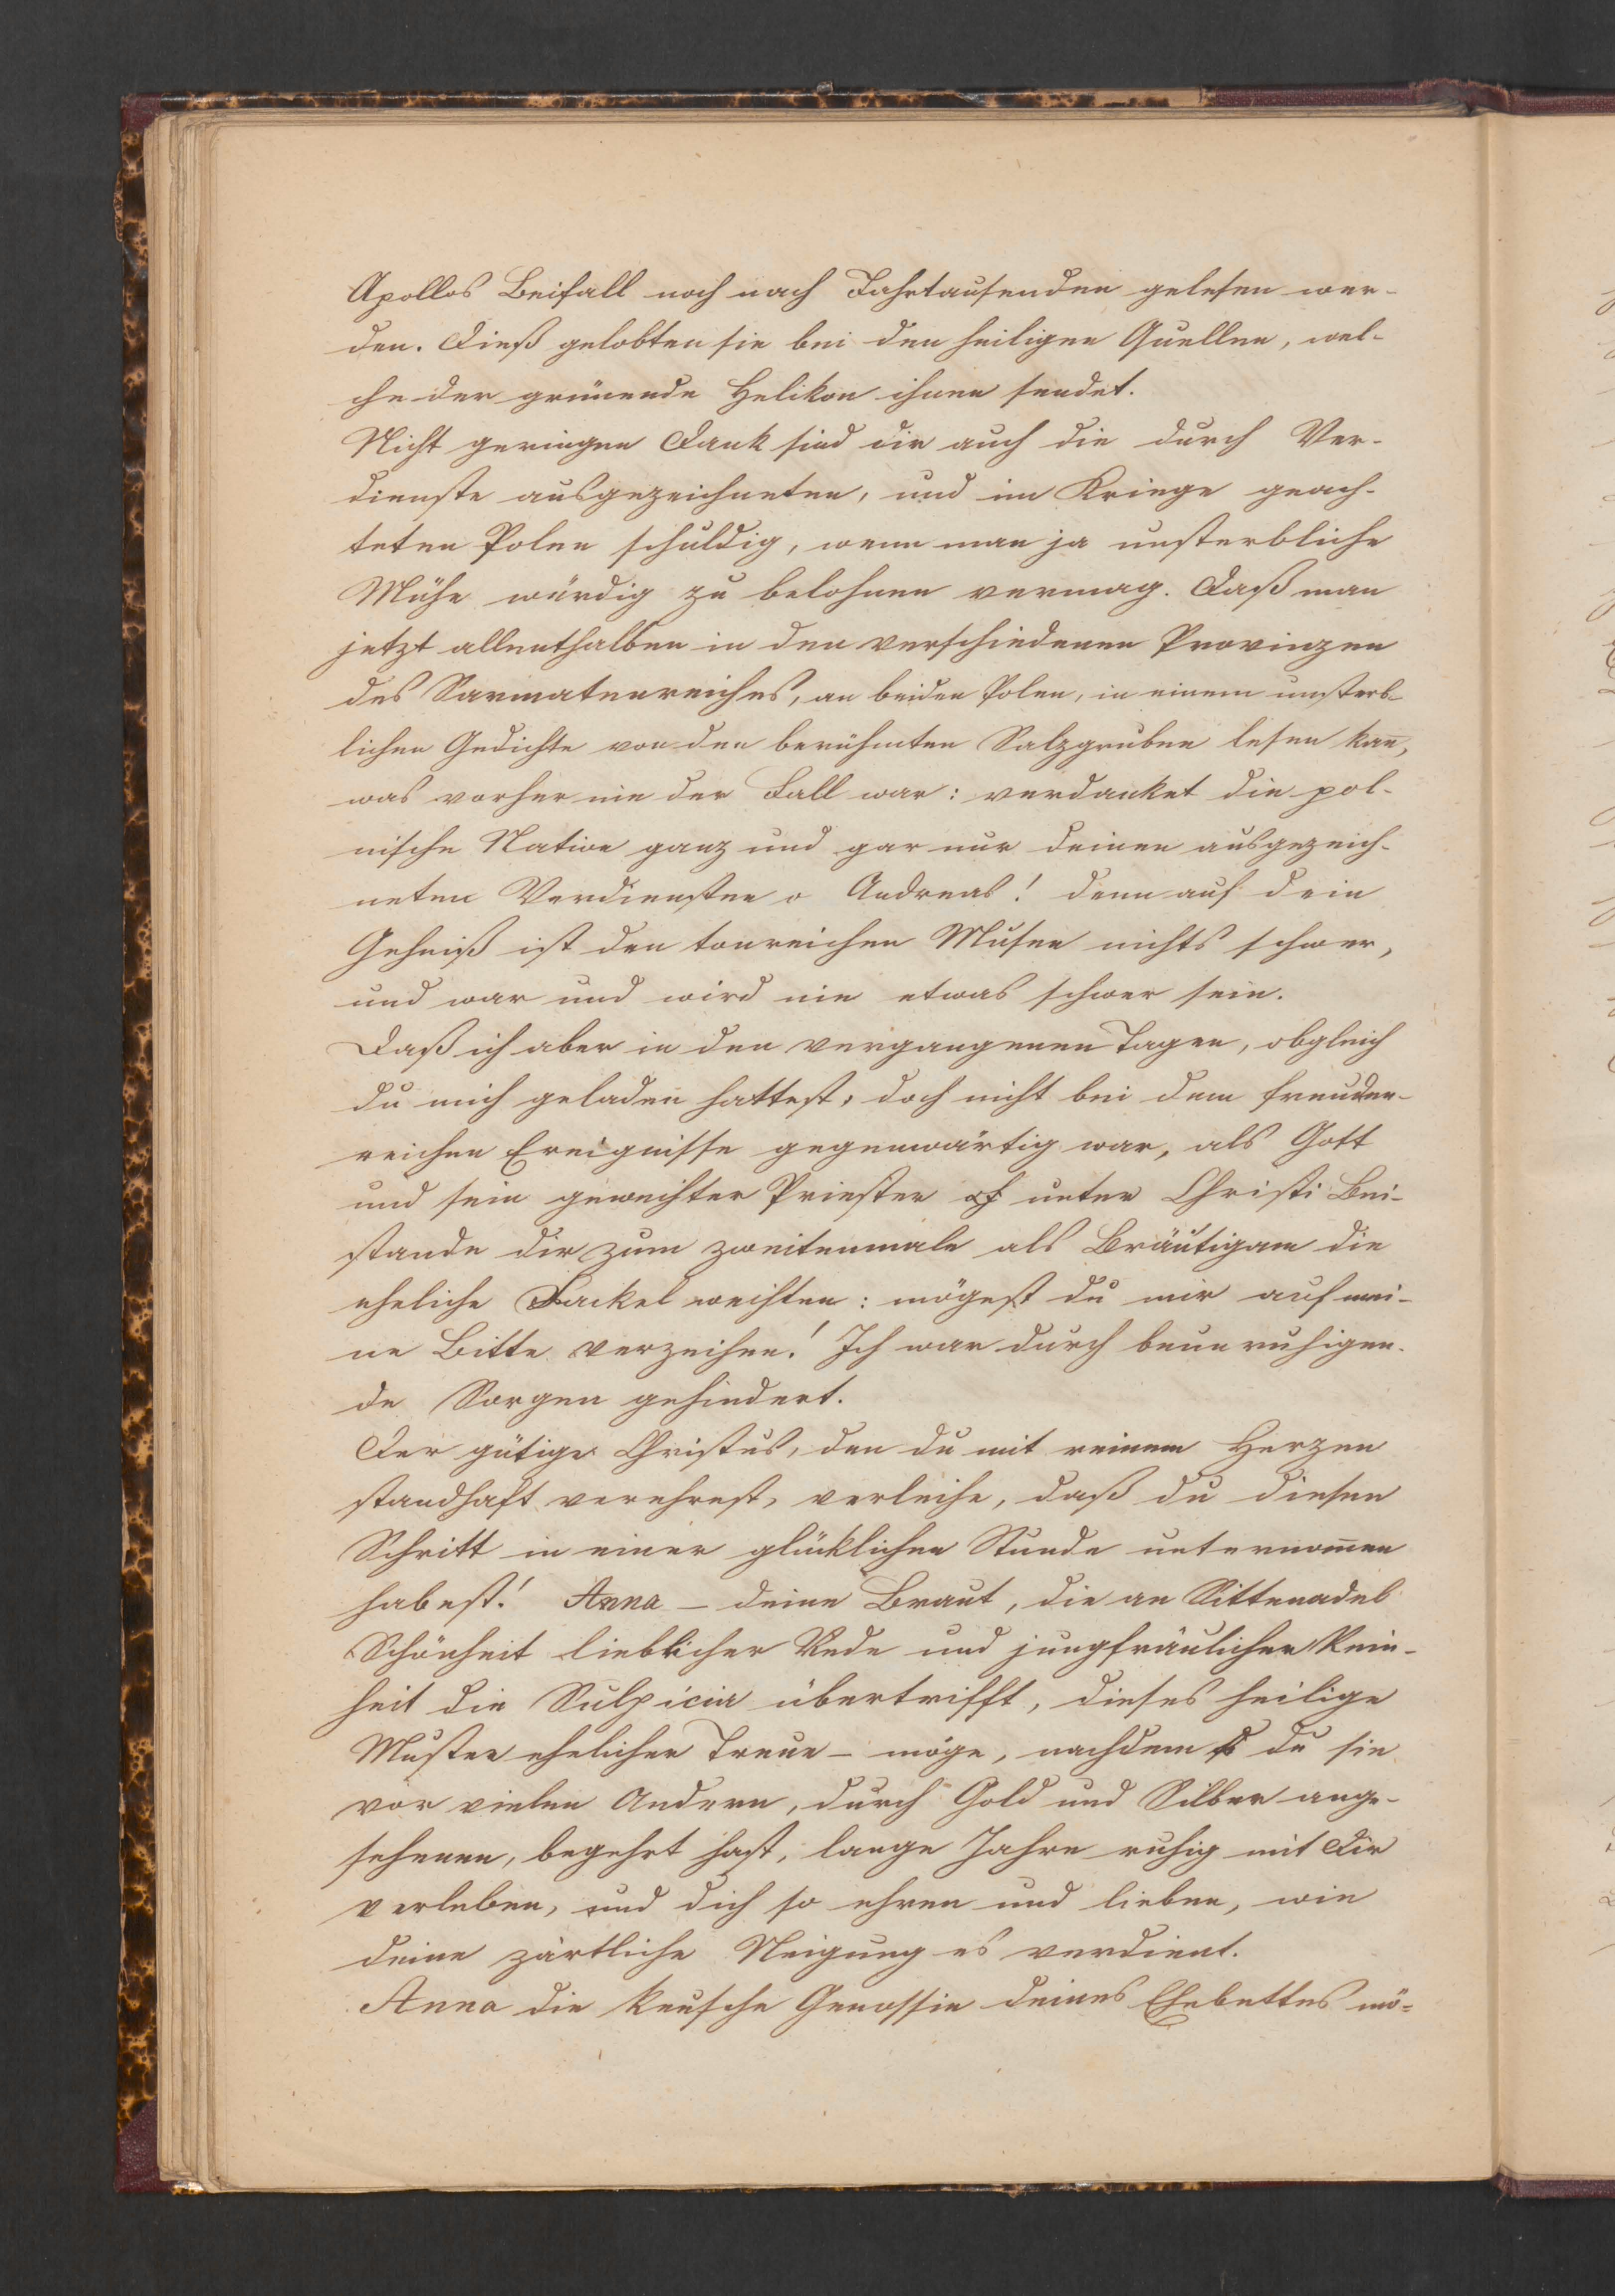 Apollos Beifall noch nach Jahrtausenden gelesen wer-
den. Dieß gelobten sie bei den heiligen Quellen, wel-
che der grünende Helikon ihnen sendet.
Nicht geringen Dank sind dir auch die durch Ver-
dienste ausgezeichneten, und im Kriege geach-
teten Polen schuldig, wenn man ja unsterbliche
Mühe würdig zu belohnen vermag. Daß man
jetzt allenthalben in den verschiedenen Provinzen
des Sarmatenreiches, an beiden Polen, in einem unsterb-
lichen Gedichte von den berühmten Salzgruben lesen kan̄,
was vorher nie der Fall war: verdanket die pol-
nische Nation ganz und gar nur deinen ausgezeich-
neten Verdiensten o Andreas! denn auf dein
Geheiß ist den tonreichen Musen nichts schwer,
und war und wird nie etwas schwer sein.
Daß ich aber in den vergangenen Tagen, obgleich
du mich geladen hattest, doch nicht bei dem freuden-
reichen Ereignisse gegenwärtig war, als Gott
und sein geweihter Priester unter Christi Bei-
stande dir zum zweitenmale als Bräutigam die
eheliche Fackel weihten: mögest du mir auf mei-
ne Bitte verzeihen! Ich war durch beunruhigen-
de Sorgen gehindert.
Der gütige Christus, den du mit reinem Herzen
standhaft verehrest, verleihe, daß du diesen
Schritt in einer glücklichen Stunde unternom̄en
habest! Anna – deine Braut, die an Sittenadel
Schönheit lieblicher Rede und jungfräulicher Rein-
heit die Sulpicia übertrifft, dieses heilige
Muster ehelicher Treue – möge, nachdem du sie
vor vielen Andern, durch Gold und Silber ange-
sehenen, begehrt hast, lange Jahre ruhig mit Dir
verleben, und dich so ehren und lieben, wie
deine zärtliche Neigung es verdient.
Anna die keusche Genossin deines Ehebettes mö-